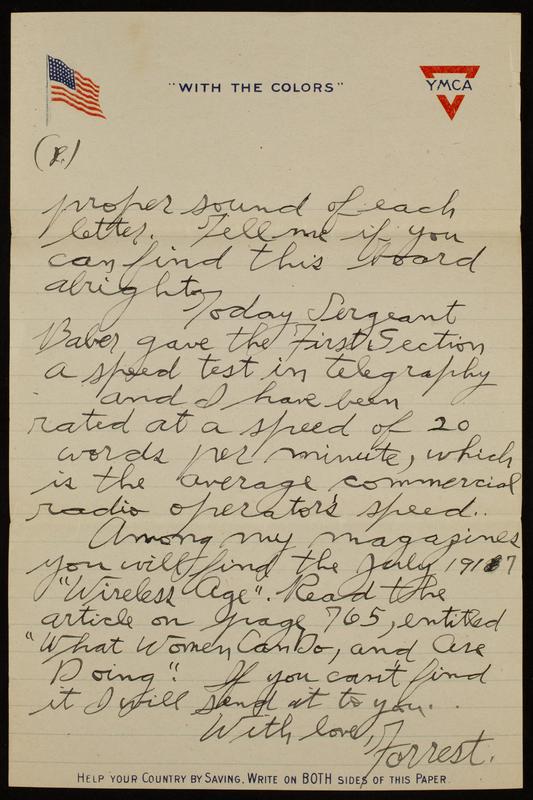 "WITH THE COLORS"
YMCA
(8.)
proper sound of each
letter. Tell me if you
can find this board
alright.
Today Sergeant
Baber gave the First Section
a speed test in telegraphy
and I have been
rated at a speed of 20
words per minute, which
is the average commercial
radio operator's speed..
Among my magazines
you will find the July 1917
"Wireless Age". Read the
article on page 765, entitled
"What Women Can Do, and Are
Doing". If you can't find
it I will send it to you.
With love,
Forrest.
HELP YOUR COUNTRY BY SAVING, WRITE ON BOTH SIDES OF THIS PAPER.